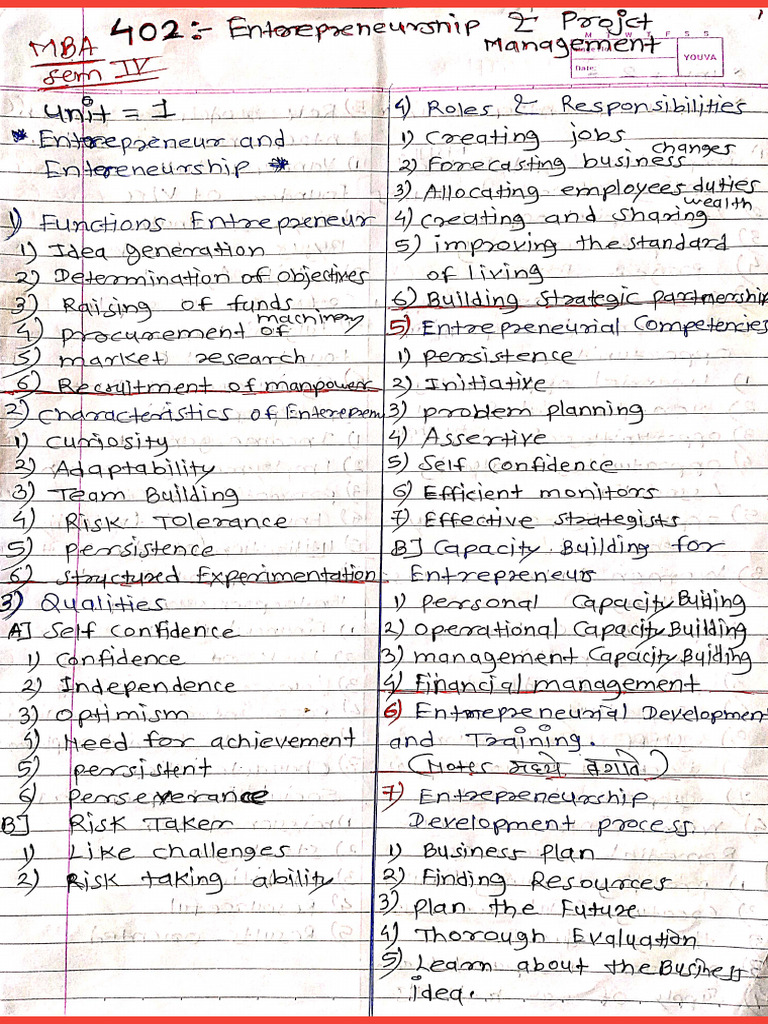 402:- Entrepreneurship & Projct
Management
MBA
Sem IV
1
M T W T F S S
Date:
YOUVA
Unit = I
* Entrepreneur and
Entereneurship *
1) Functions Entrepreneur
1) Idea generation
2) Determination of objectives
3) Raising of funds
4) procurement of machinery
5) market research
6) Recruitment of manpower
2) characteristics of Enterepren
1) Curiosity
2) Adaptability
3) Team Building
4) Risk Tolerance
5) persistence
6) structured Experimentation
3) Qualities
A] Self confidence
1) confidence
2) Independence
3) optimism
4) Need for achievement
5) persistent
6) perseverance
B] Risk Taker
1) Like challenges
2) Risk taking ability
4) Roles & Responsibilities
1) Creating jobs
2) Forecasting business changes
3) Allocating employees duties
4) creating and sharing wealth
5) improving the standard
of living
6) Building strategic partnership
5) Entrepreneurial Competencies
1) persistence
2) Initiative
3) problem planning
4) Assertive
5) Self Confidence
6) Efficient monitors
7) Effective strategists
B] Capacity Building for
Entrepreneur
1) personal Capacity Building
2) operational Capacity Building
3) management Capacity Buiding
4) Financial management
6) Entrepreneurial Development
and Training.
(Notes मध्ये बघावे)
7) Entrepreneurship
Development process
1) Business Plan
2) Finding Resources
3) plan the Future
4) Thorough Evaluation
5) Learn about the Business
idea.